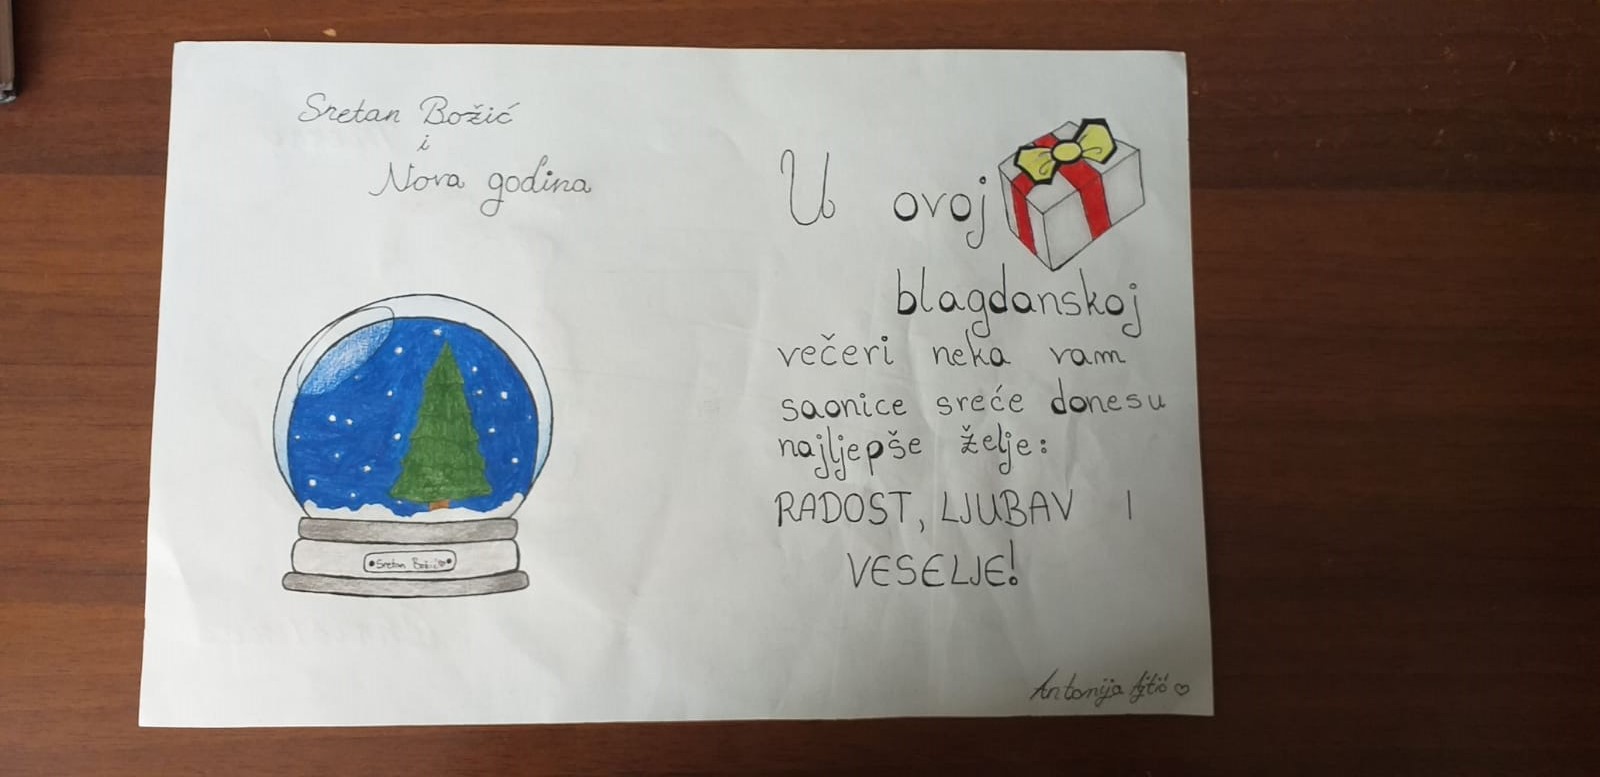 Sretan Božić
i
Nova godina
Sretan Božić
U ovoj
blagdanskoj
večeri neka vam
saonice sreće donesu
najljepše želje:
RADOST, LJUBAV I
VESELJE!
Antonija